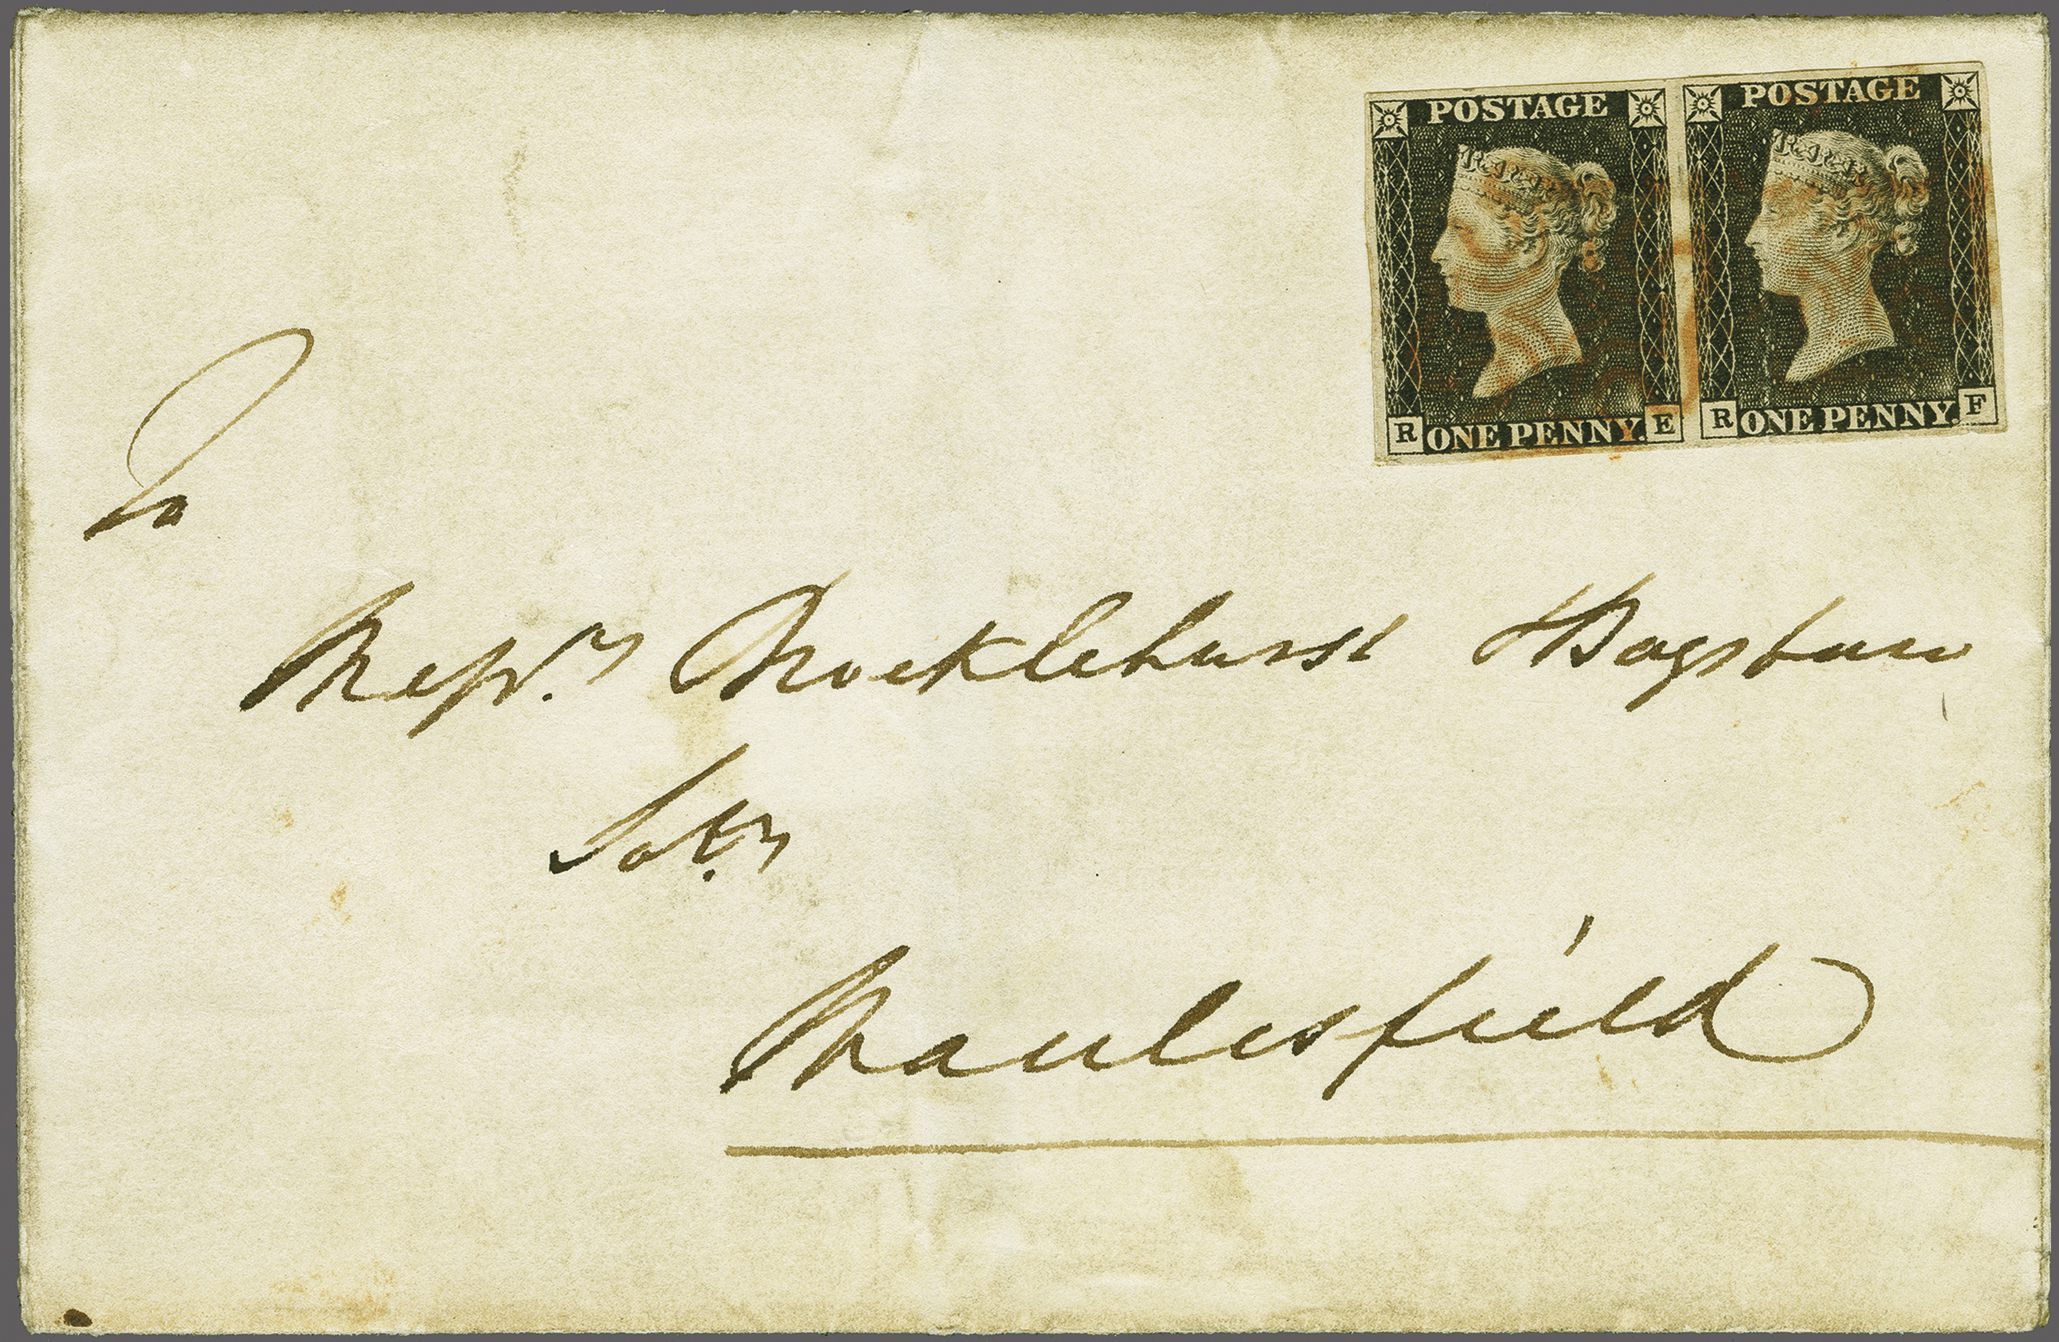 POSTAGE POSTAGE
R ONE PENNY. E R ONE PENNY. F
To
Messrs Brocklehurst & Bagshaw
Solrs
Macclesfield